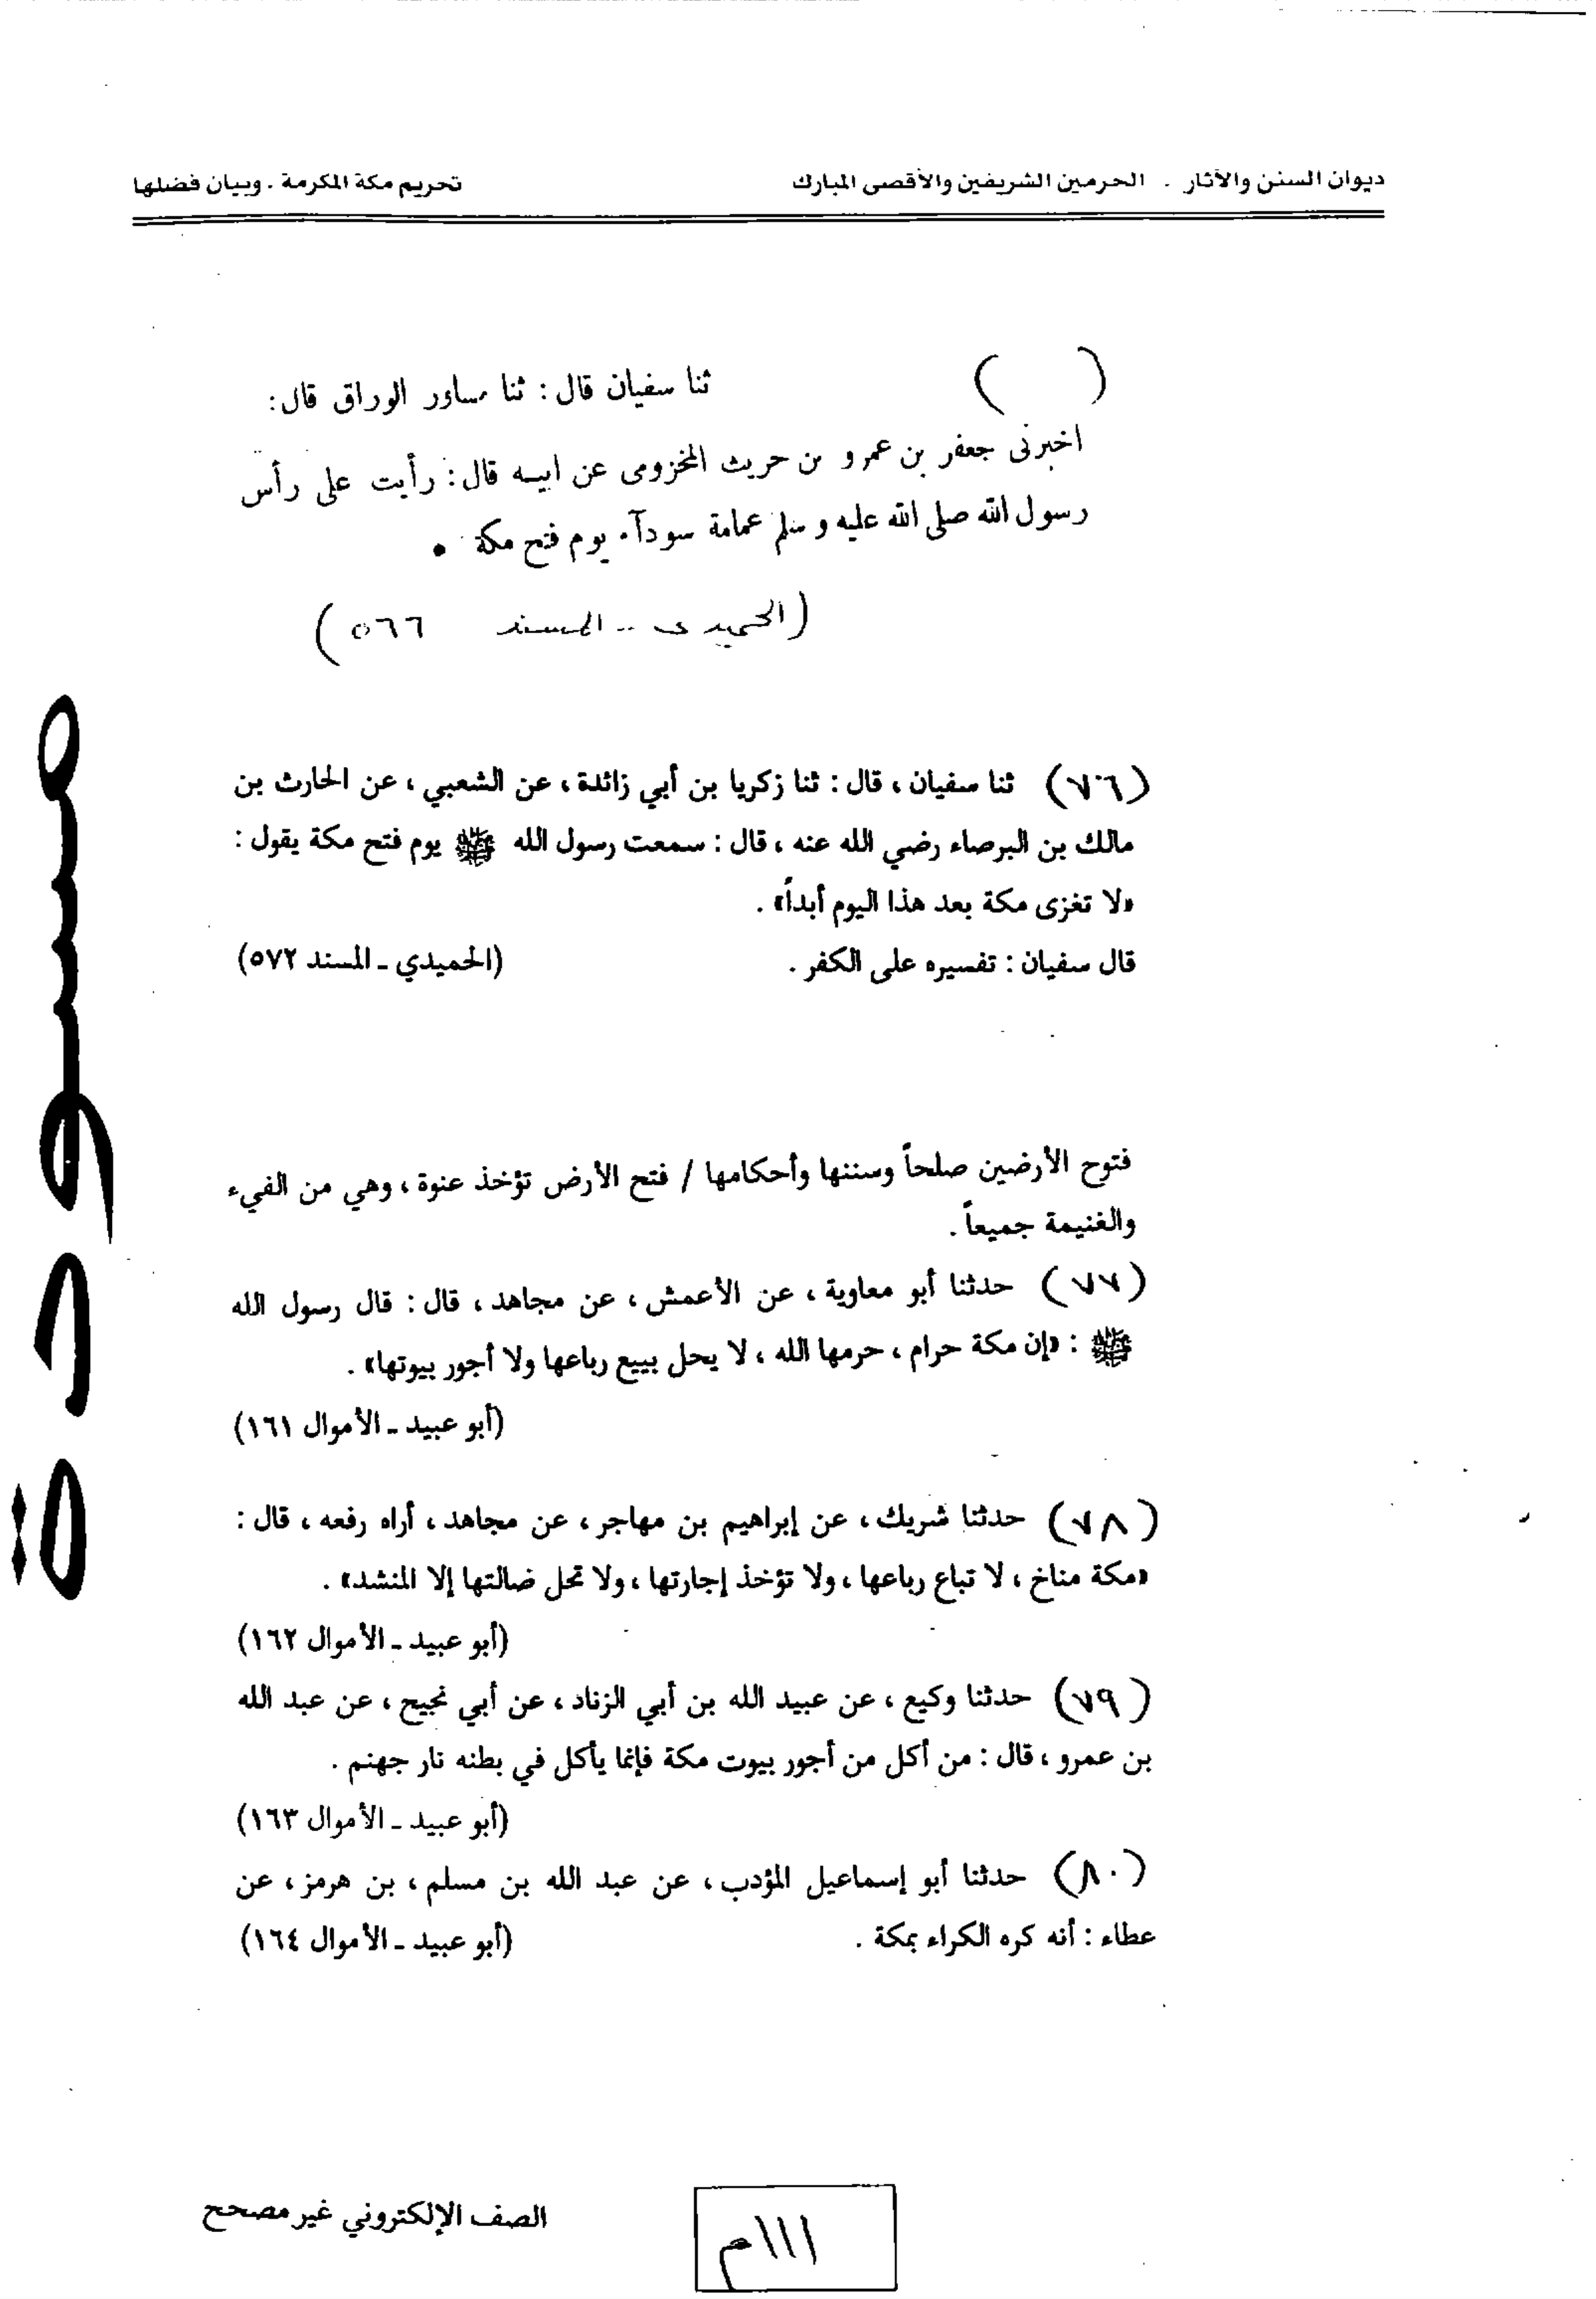 ديوان السنن والآثار . الحرمين الشريفين والأقصى المبارك
تحريم مكة المكرمة . وبيان فضلها
( ) ثنا سفيان قال : ثنا مساور الوراق قال :
اخبرنى جعفر بن عمرو بن حريث المخزومى عن ابيه قال : رأيت على رأس
رسول الله صلى الله عليه وسلم عمامة سودآء يوم فتح مكة •
(الحميدى - المسند ٥٦٦)
(٧٦) ثنا سفيان ، قال : ثنا زكريا بن أبي زائدة ، عن الشعبي ، عن الحارث بن
مالك بن البرصاء رضي الله عنه ، قال : سمعت رسول الله ﷺ يوم فتح مكة يقول :
«لا تغزى مكة بعد هذا اليوم أبداً» .
قال سفيان : تفسيره على الكفر . (الحميدي - المسند ٥٧٢)
فتوح الأرضين صلحاً وسننها وأحكامها / فتح الأرض تؤخذ عنوة ، وهي من الفيء
والغنيمة جميعاً .
(٧٧) حدثنا أبو معاوية ، عن الأعمش ، عن مجاهد ، قال : قال رسول الله
ﷺ : «إن مكة حرام ، حرمها الله ، لا يحل بيع رباعها ولا أجور بيوتها» .
(أبو عبيد - الأموال ١٦١)
(٧٨) حدثنا شريك ، عن إبراهيم بن مهاجر ، عن مجاهد ، أراه رفعه ، قال :
«مكة مناخ ، لا تباع رباعها ، ولا تؤخذ إجارتها ، ولا تحل ضالتها إلا المنشد» .
(أبو عبيد - الأموال ١٦٢)
(٧٩) حدثنا وكيع ، عن عبيد الله بن أبي الزناد ، عن أبي نجيح ، عن عبد الله
بن عمرو ، قال : من أكل من أجور بيوت مكة فإنما يأكل في بطنه نار جهنم .
(أبو عبيد - الأموال ١٦٣)
(٨٠) حدثنا أبو إسماعيل المؤدب ، عن عبد الله بن مسلم ، بن هرمز ، عن
عطاء : أنه كره الكراء بمكة . (أبو عبيد - الأموال ١٦٤)
مسودة
١١١م
الصف الإلكتروني غير مصحح